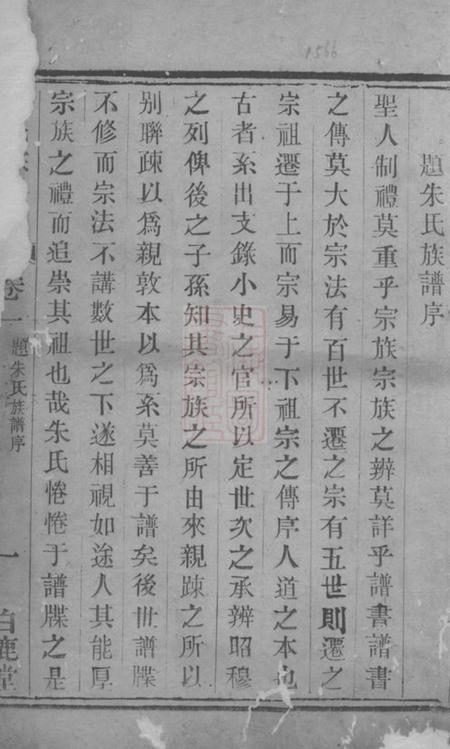 1566
題朱氏族譜序
聖人制禮莫重乎宗族宗族之辨莫詳乎譜書譜書
之傳莫大於宗法有百世不遷之宗有五世則遷之
宗祖遷于上而宗易于下祖宗之傳序人道之本也
古者系出支錄小史之官所以定世次之承辨昭穆
之列俾後之子孫知其宗族之所由來親踈之所以
别聯踈以為親敦本以為系莫善于譜矣後世譜牒
不修而宗法不講數世之下遂相視如途人其能厚
宗族之禮而追崇其祖也哉朱氏惓惓于譜牒之是
卷一
題朱氏族譜序
一
白鹿堂